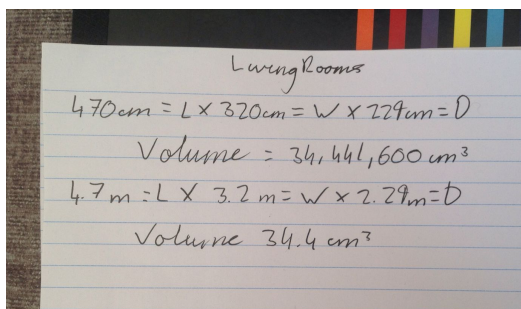 Living Rooms
470cm = L X 320cm = W X 229cm = D
Volume = 34,441,600 cm³
4.7m = L X 3.2m = W X 2.29m = D
Volume 34.4 cm³